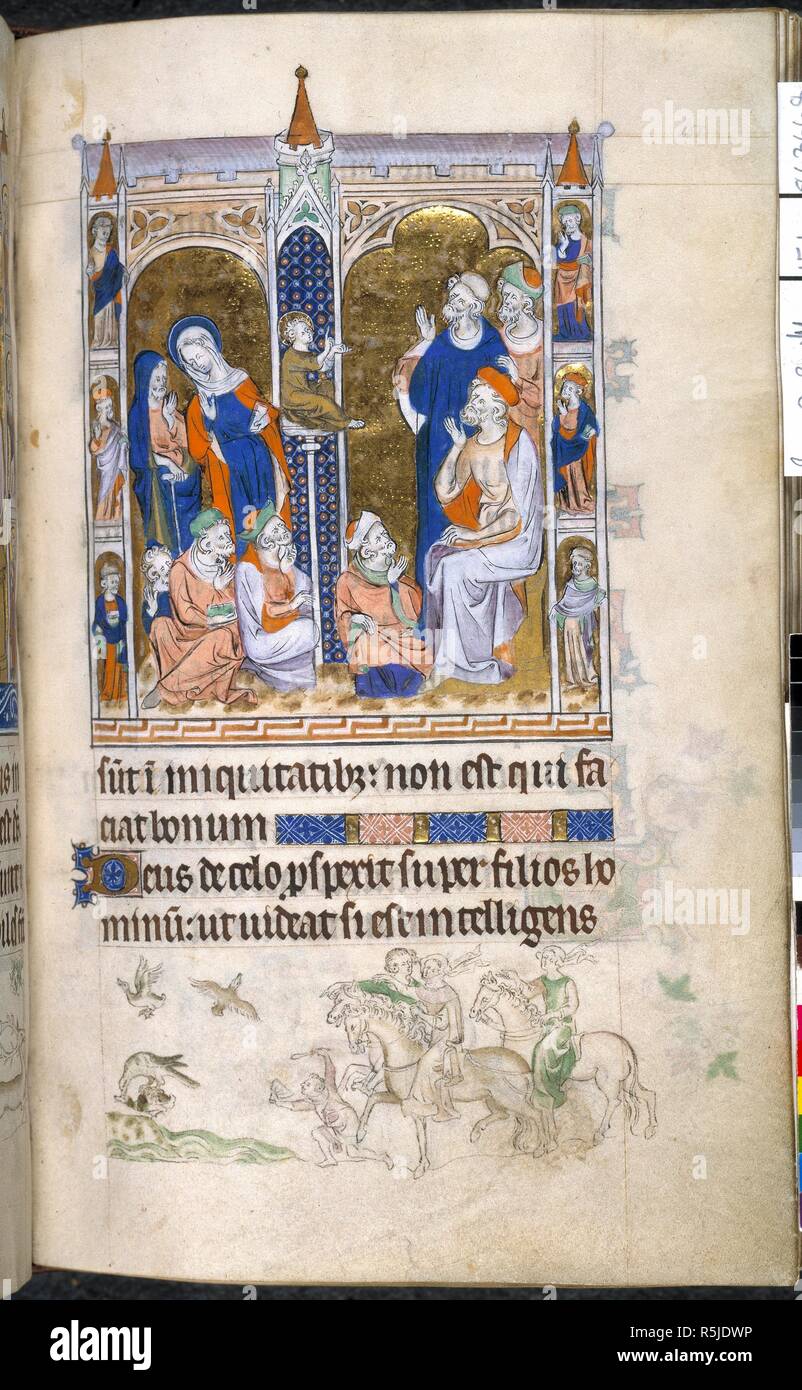 sūt ī iniquitatibꝫ: non est qui fa
ciat bonum
Deus de celo ꝓspexit super filios ho
minū: ut uideat si est intelligens
alamy
alamy stock photo
R5JDWP
www.alamy.com